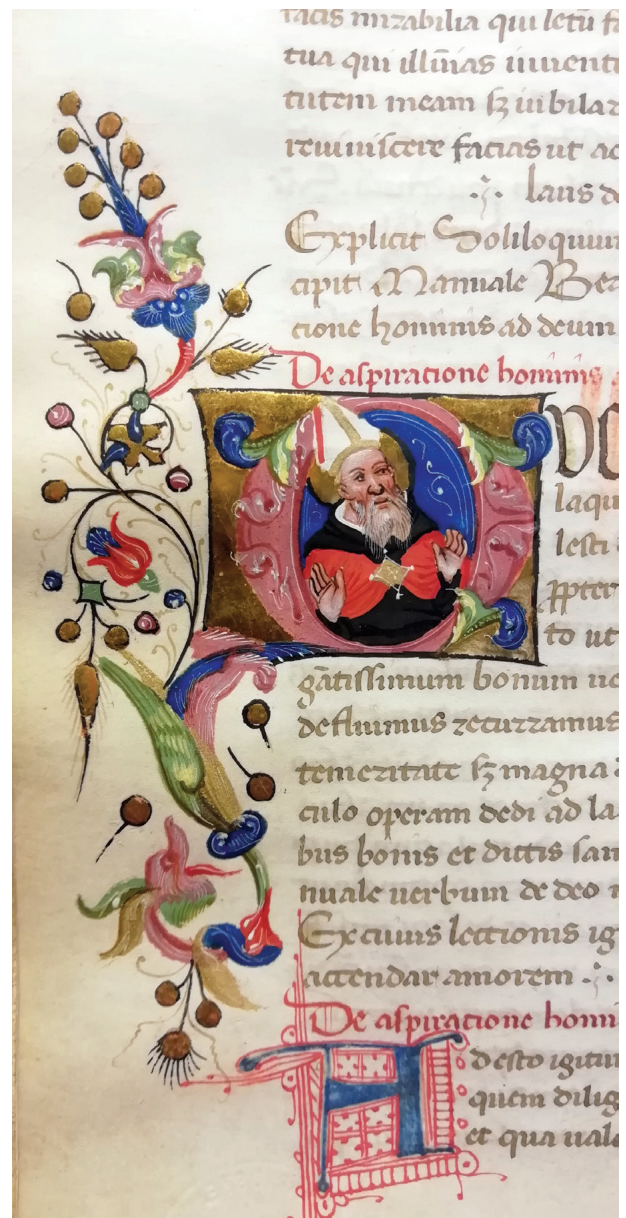 facis mirabilia qui letū f
tua qui illūīas iuuentu
tutem meam sʒ iubilar
reuiniscere facias ut ac
laus de
Explicit Soliloquiu
cipit Manuale Bea
cione hominis ad deum
De aspiracione hominis
QUO
laqu
lesti
ꝓpter
to ut
gātissimum bonum ue
defluimus recurramus
temeritate sʒ magna
culo operam dedi ad la
bus bonis et dictis san
nuale uerbum de deo
Ex cuius lectionis ig
accendar amorem
De aspiracione homi
Adesto igitur
quem dilig
et qua uale